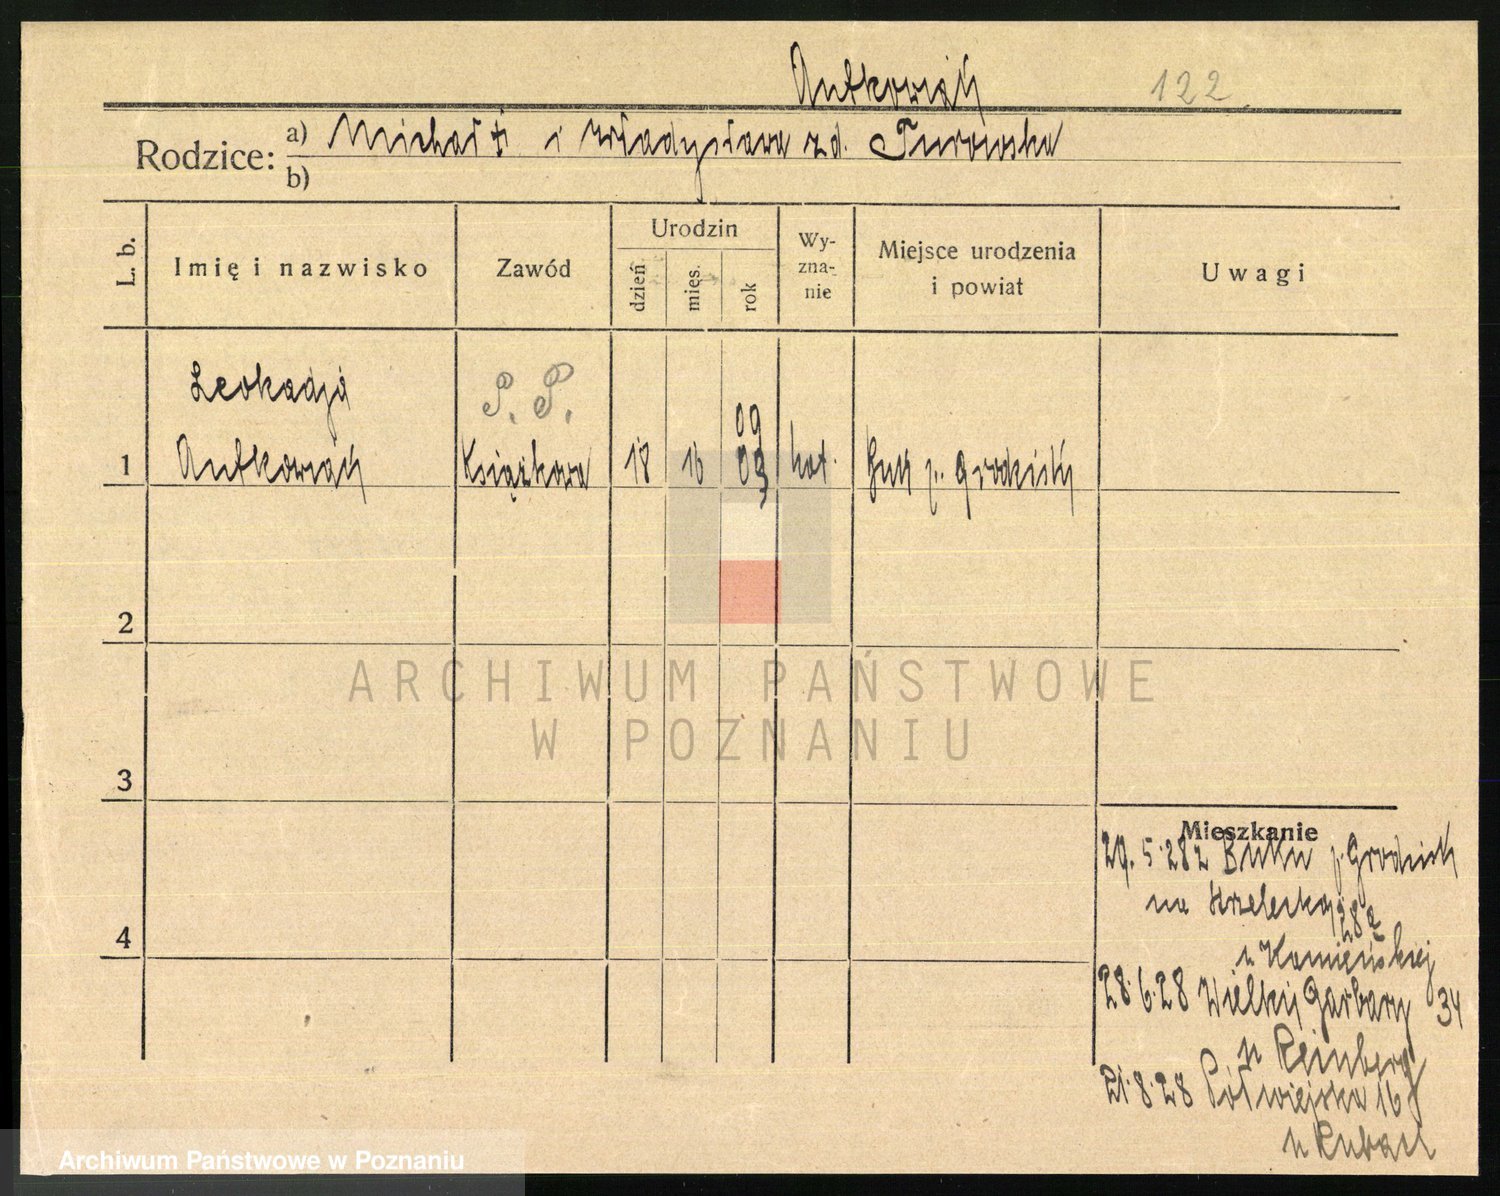 Antkowiak 122
Rodzice: a) Michał i Władysława zd. Turowska
b)
L. b. Imię i nazwisko Zawód Urodzin dzień mięs. rok Wy-
zna-
nie Miejsce urodzenia
i powiat Uwagi
Leokadja P. P. 09
1 Antkowiak Książkowa 18 09 kat. Buk p. Grodzisk
2
ARCHIWUM PAŃSTWOWE
W POZNANIU
3
Mieszkanie
29.5.28 z Buku p. Grodzisk
na Strzelecką 28a
4
u Kamieńskiej
28.6.28 Wielkie Garbary 34
u Reinberg
21.8.28 Półwiejska 16
u
Archiwum Państwowe w Poznaniu